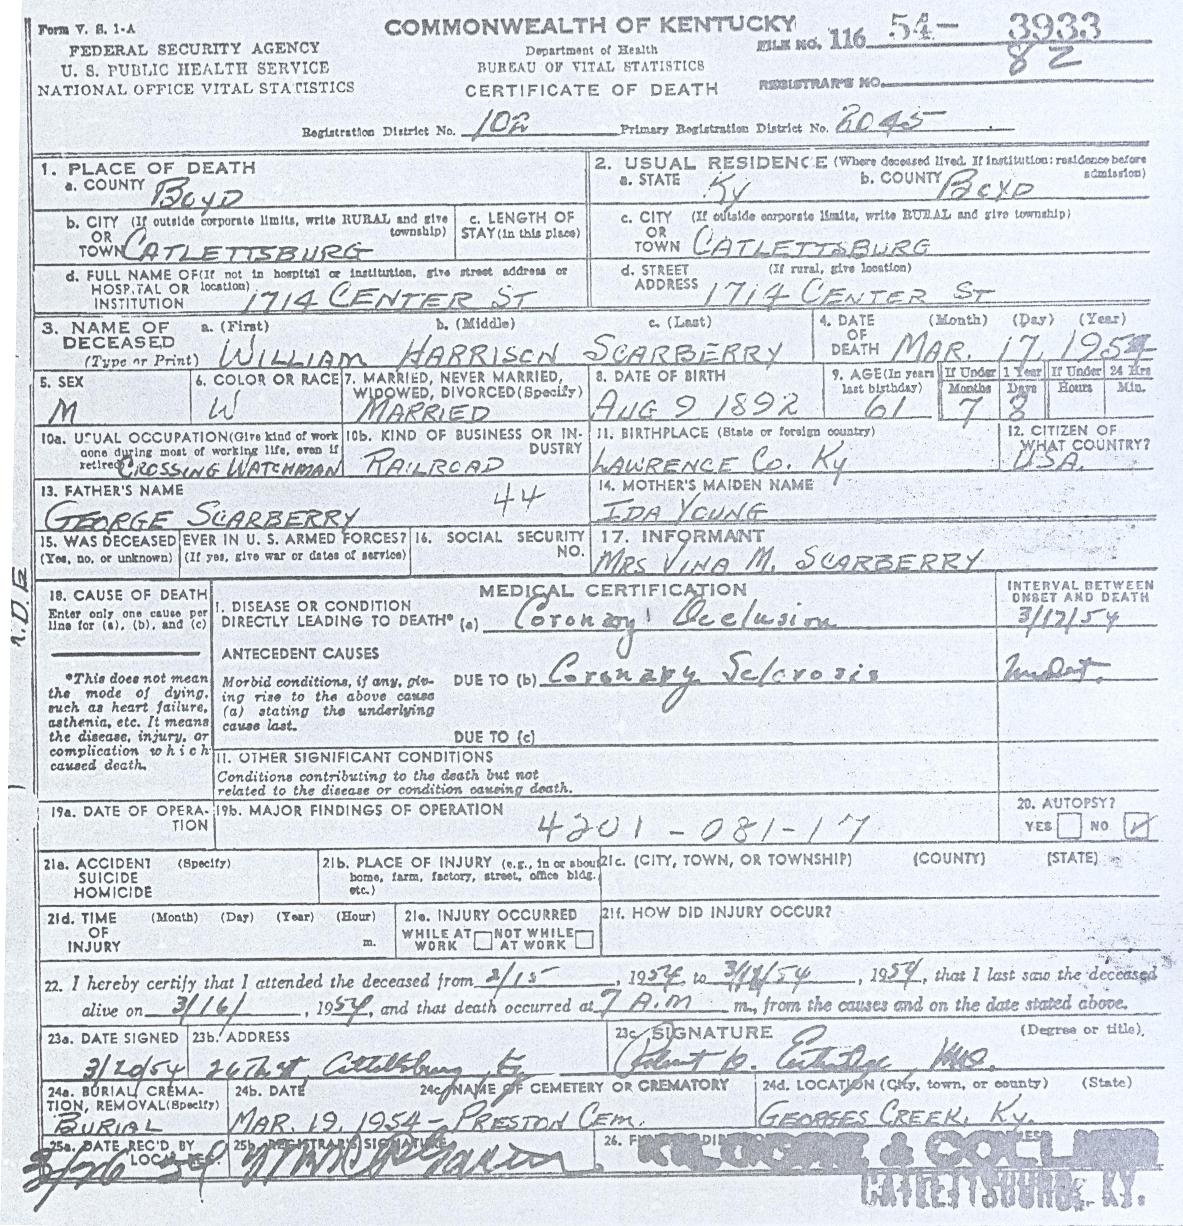 Form V. S. 1-A
FEDERAL SECURITY AGENCY
U. S. PUBLIC HEALTH SERVICE
NATIONAL OFFICE VITAL STATISTICS
COMMONWEALTH OF KENTUCKY
Department of Health
BUREAU OF VITAL STATISTICS
CERTIFICATE OF DEATH
FILE NO. 116 54- 3933
82
REGISTRAR'S NO.
Registration District No. 102 Primary Registration District No. 2045
1. PLACE OF DEATH
a. COUNTY BOYD
2. USUAL RESIDENCE (Where deceased lived. If institution: residence before admission)
a. STATE KY b. COUNTY BOYD
b. CITY (If outside corporate limits, write RURAL and give township)
OR
TOWN CATLETTSBURG
c. LENGTH OF STAY (in this place)
c. CITY (If outside corporate limits, write RURAL and give township)
OR
TOWN CATLETTSBURG
d. FULL NAME OF (If not in hospital or institution, give street address or location)
HOSPITAL OR
INSTITUTION 1714 CENTER ST
d. STREET (If rural, give location)
ADDRESS 1714 CENTER ST
3. NAME OF DECEASED
(Type or Print)
a. (First) b. (Middle) c. (Last)
WILLIAM HARRISON SCARBERRY
4. DATE OF DEATH (Month) (Day) (Year)
MAR. 17, 1954
5. SEX
M
6. COLOR OR RACE
W
7. MARRIED, NEVER MARRIED, WIDOWED, DIVORCED (Specify)
MARRIED
8. DATE OF BIRTH
AUG 9 1892
9. AGE (In years last birthday)
61
If Under 1 Year
Months Days
7 8
If Under 24 Hrs
Hours Min.
10a. USUAL OCCUPATION (Give kind of work done during most of working life, even if retired)
CROSSING WATCHMAN
10b. KIND OF BUSINESS OR INDUSTRY
RAILROAD
11. BIRTHPLACE (State or foreign country)
LAWRENCE CO. KY
12. CITIZEN OF WHAT COUNTRY?
USA.
13. FATHER'S NAME
44
GEORGE SCARBERRY
14. MOTHER'S MAIDEN NAME
IDA YOUNG
15. WAS DECEASED EVER IN U. S. ARMED FORCES?
(Yes, no, or unknown) (If yes, give war or dates of service)
16. SOCIAL SECURITY NO.
17. INFORMANT
MRS VINA M. SCARBERRY
18. CAUSE OF DEATH
Enter only one cause per line for (a), (b), and (c)
*This does not mean the mode of dying, such as heart failure, asthenia, etc. It means the disease, injury, or complication which caused death.
MEDICAL CERTIFICATION
INTERVAL BETWEEN ONSET AND DEATH
I. DISEASE OR CONDITION
DIRECTLY LEADING TO DEATH* (a) Coronary Occlusion 3/17/54
ANTECEDENT CAUSES
Morbid conditions, if any, giving rise to the above cause (a) stating the underlying cause last.
DUE TO (b) Coronary Sclerosis
DUE TO (c)
II. OTHER SIGNIFICANT CONDITIONS
Conditions contributing to the death but not related to the disease or condition causing death.
19a. DATE OF OPERATION
19b. MAJOR FINDINGS OF OPERATION
4201-081-17
20. AUTOPSY?
YES NO ✓
21a. ACCIDENT (Specify)
SUICIDE
HOMICIDE
21b. PLACE OF INJURY (e.g., in or about home, farm, factory, street, office bldg. etc.)
21c. (CITY, TOWN, OR TOWNSHIP) (COUNTY) (STATE)
21d. TIME OF INJURY (Month) (Day) (Year) (Hour)
m.
21e. INJURY OCCURRED
WHILE AT WORK NOT WHILE AT WORK
21f. HOW DID INJURY OCCUR?
22. I hereby certify that I attended the deceased from 2/15, 1954, to 3/17/54, 1954, that I last saw the deceased
alive on 3/16/, 1954, and that death occurred at 7 A.M m., from the causes and on the date stated above.
23a. DATE SIGNED
3/20/54
23b. ADDRESS
Catlettsburg, Ky
23c. SIGNATURE (Degree or title)
24a. BURIAL, CREMATION, REMOVAL (Specify)
BURIAL
24b. DATE
MAR. 19, 1954
24c. NAME OF CEMETERY OR CREMATORY
PRESTON CEM.
24d. LOCATION (City, town, or county) (State)
GEORGES CREEK, KY.
25a. DATE REC'D BY LOCAL REG.
25b. REGISTRAR'S SIGNATURE
26.
CATLETTSBURG, KY.